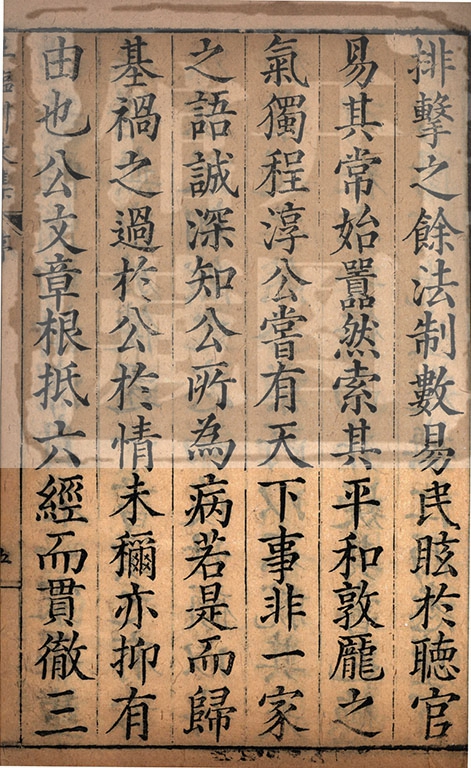 排擊之餘法制數易民眩於聽官
易其常始囂然索其平和敦厖之
氣獨程淳公嘗有天下事非一家
之語誠深知公所為病若是而歸
基禍之過於公於情未稱亦抑有
由也公文章根抵六經而貫徹三